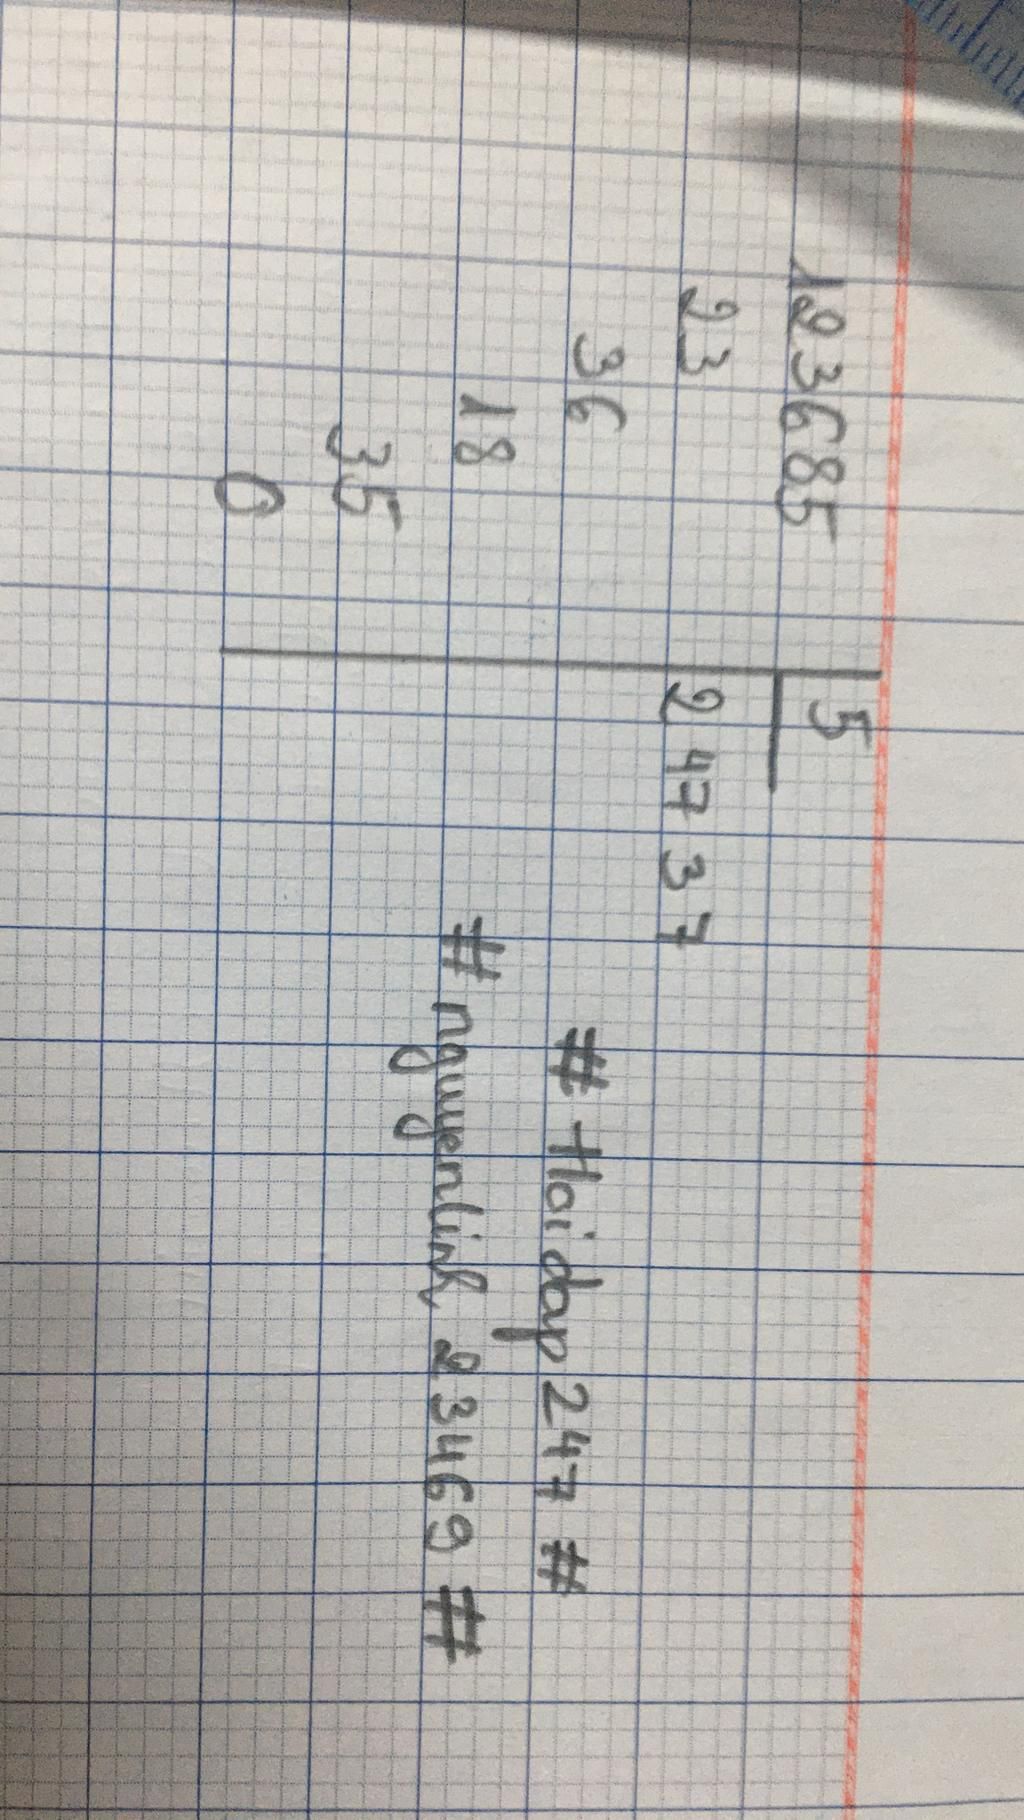 123685 5
23 24737
36
18
35
0
# Hoidap 247 #
# nguyenlinh 23469 #